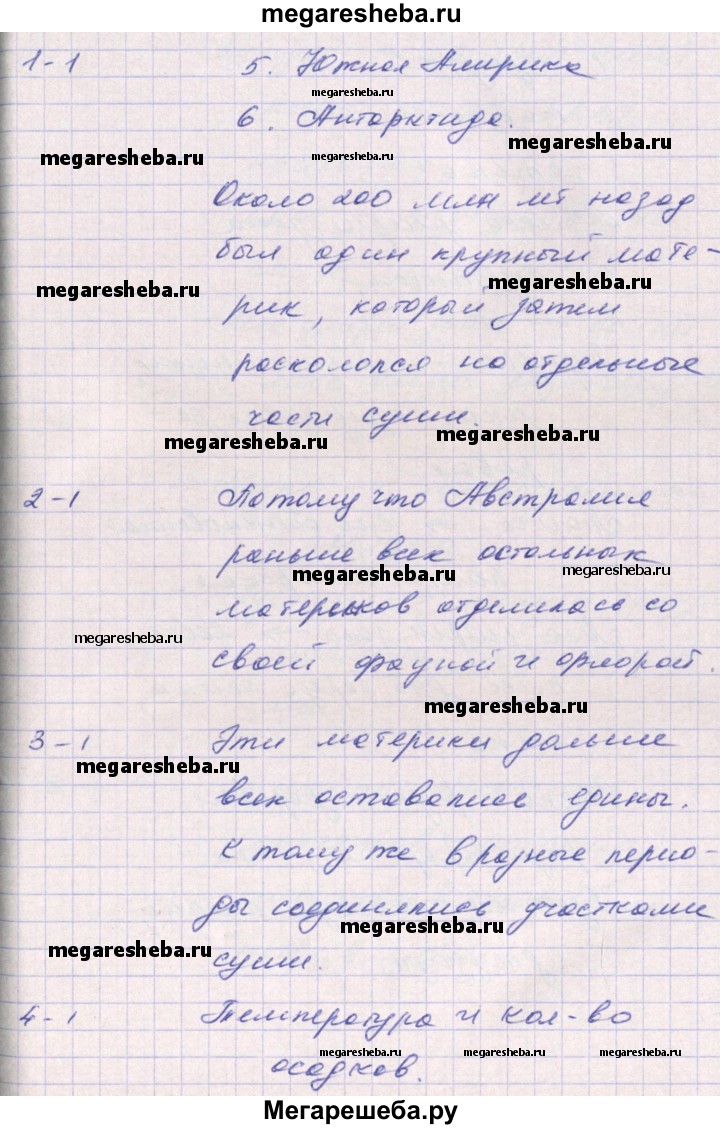 megaresheba.ru
1-1 5. Южная Америка
megaresheba.ru
6. Антарктида.
megaresheba.ru
megaresheba.ru megaresheba.ru
Около 200 млн лт назад
был один крупный мате-
megaresheba.ru megaresheba.ru
рик, который затем
раскололся на отдельные
части суши.
megaresheba.ru megaresheba.ru
2-1 Потому что Австралия
раньше всех остальных
megaresheba.ru megaresheba.ru
материков отделилась со
megaresheba.ru
своей фауной и флорой.
megaresheba.ru
3-1 Эти материки дольше
megaresheba.ru
всех оставались едины.
К тому же в разные перио-
ды соединялись участками
megaresheba.ru
megaresheba.ru
суши.
4-1 Температура и кол-во
осадков.
megaresheba.ru megaresheba.ru megaresheba.ru
Мегарешеба.ру